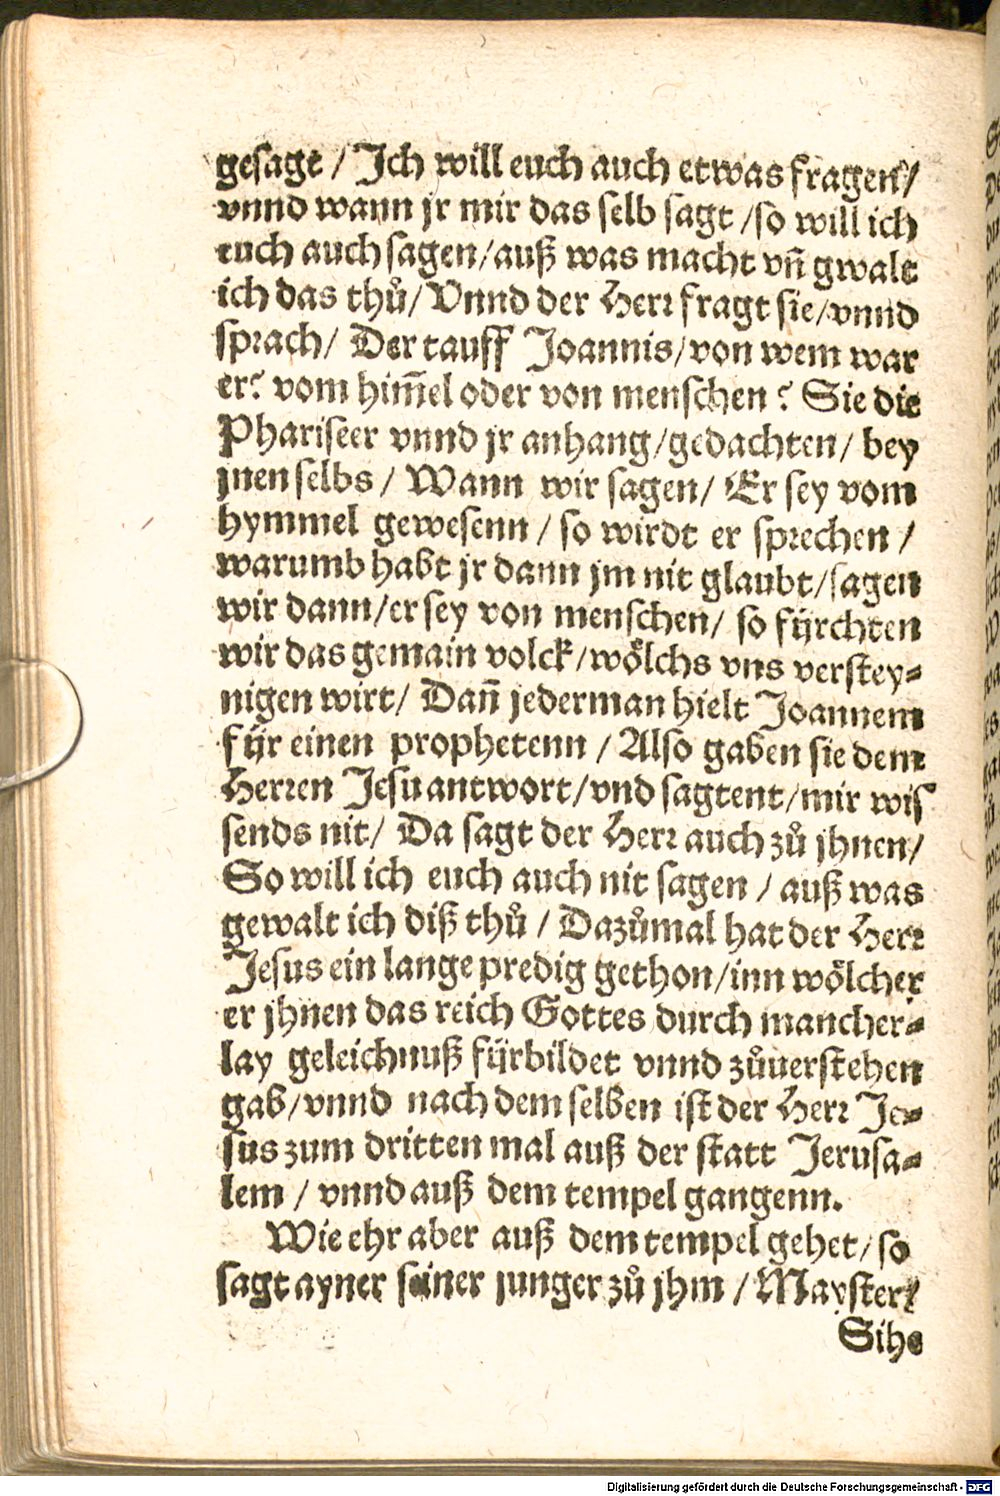 gesagt / Ich will euch auch etwas fragen /
vnnd wann jr mir das selb sagt /so will ich
euch auch sagen/auß was macht vñ gwalt
ich das thů/ Vnnd der Herr fragt sie/vnnd
sprach/ Der tauff Joannis/von wem war
er? vom him̃el oder von menschen? Sie die
Phariseer vnnd jr anhang/gedachten/ bey
jnen selbs / Wann wir sagen/ Er sey vom
hymmel gewesenn / so wirdt er sprechen /
warumb habt jr dann jm nit glaubt/sagen
wir dann/er sey von menschen/ so fÿrchten
wir das gemain volck/wölchs vns verstey-
nigen wirt/ Dañ jederman hielt Joannem
fÿr einen prophetenn / Also gaben sie dem
Herren Jesu antwort/vnd sagtent/mir wis
sends nit/ Da sagt der Herr auch zů jhnen/
So will ich euch auch nit sagen / auß was
gewalt ich diß thů / Dazůmal hat der Herr
Jesus ein lange predig gethon/inn wölcher
er jhnen das reich Gottes durch mancher-
lay geleichnuß fÿrbildet vnnd zůuerstehen
gab/vnnd nach dem selben ist der Herr Je-
sus zum dritten mal auß der statt Jerusa-
lem / vnnd auß dem tempel gangenn.
Wie ehr aber auß dem tempel gehet/ so
sagt ayner seiner junger zů jhm / Mayster/
Sihe
Digitalisierung gefördert durch die Deutsche Forschungsgemeinschaft - DFG